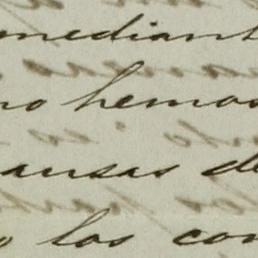 mediant
no hemos
ansas de
o los con